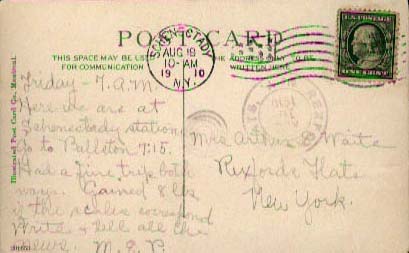 POST CARD
THIS SPACE MAY BE USED THE ADDRESS TO BE
FOR COMMUNICATION WRITTEN HERE
Illustrated Post Card Co., Montreal.
SCHENECTADY
AUG 19
10-AM
1910
N.Y.
U.S. POSTAGE
ONE CENT
Friday - 7 A.M.
Here we are at
Schenectady station
Go to Ballston 7:15.
Had a fine trip both
ways. Gained 8 lbs
if the scales correspond
Write & tell all the
news. M. E. P.
Mrs Arthur Waite
Rexfords Flats
New York.